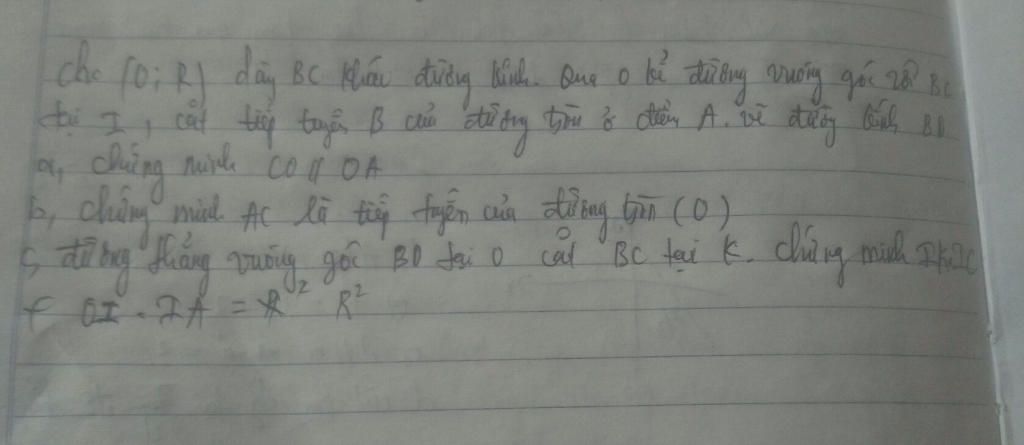 cho (O; R) dây BC khác đường kính. Qua O kẻ đường vuông góc với BC
tại I, cắt tiếp tuyến B của đường tròn ở điểm A. vẽ đường kính BD
a, chứng minh CO // OA
b, chứng minh AC là tiếp tuyến của đường tròn (O)
c, đường thẳng vuông góc BD tại O cắt BC tại K. chứng minh IK.IC
+ OI . IA = R²